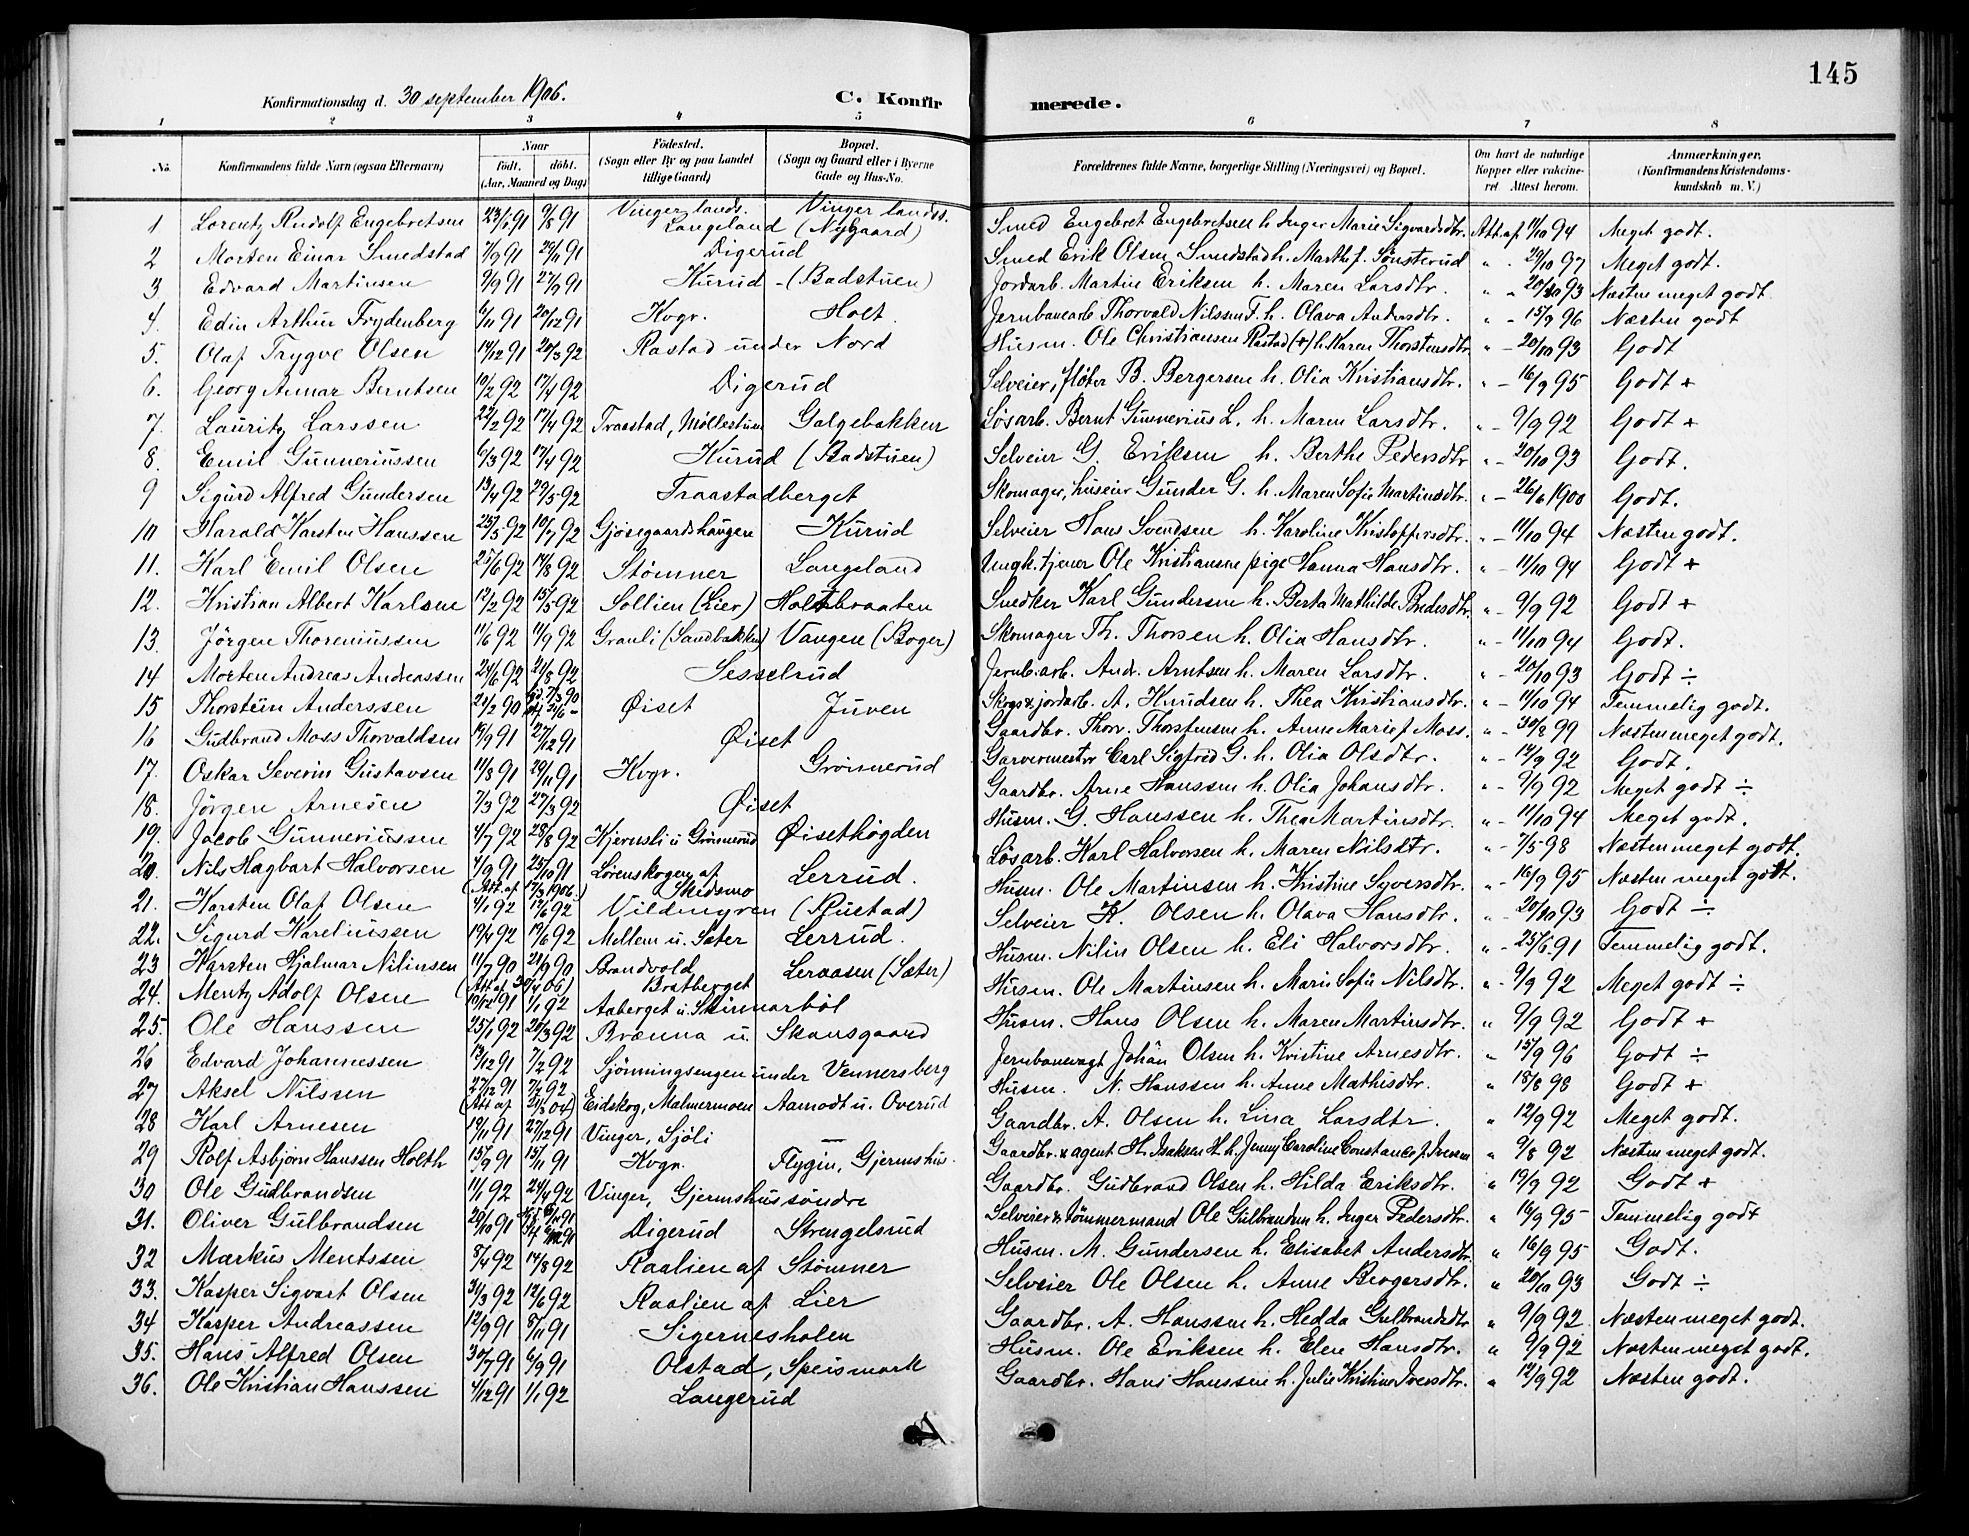 145
Konfirmationsdag d. 30 september 1906.
C. Konfirmerede.
1 2 3 4 5 6 7 8
No. Konfirmandens fulde Navn (ogsaa Efternavn) Naar födt. döbt. (Aar, Maaned og Dag) Födested. (Sogn eller By og paa Landet tillige Gaard) Bopæl. (Sogn og Gaard eller i Byerne Gade og Hus-No. Forældrenes fulde Navne, borgerlige Stilling (Næringsvei) og Bopæl. Om havt de naturlige Kopper eller vakcineret Attest herom. Anmærkninger. (Konfirmandens Kristendomskundskab m. V.)
1 Lorentz Rudolf Engebretsen 91 9/8 91 Vinger lands. Langeland Vinger landss. (Nygaard) Smed Engebret Engebretsen h. Inger Marie Sigvardsdtr. Att. af 11/10 94 Meget godt.
2 Morten Einar Smedstad 7/9 91 29/11 91 Digerud Smed Erik Olsen Smedstad h. Marthe f. Sønsterud " - 29/10 97 Meget godt.
3. Edvard Martinsen 7/9 91 27/9 91 Kurud - (Badstuen) Jordarb. Martin Eriksen h. Maren Larsdtr. " - 20/10 93 Næsten meget godt.
4. Edin Arthur Frydenberg 6/11 91 20/12 91 Kvgr. Holt Jernbanearb. Thorvald Nilssen F. h. Olava Andersdtr. " - 15/9 96 Næsten godt
5. Olaf Trygve Olsen 14/12 91 20/3 92 Rastad under Nord Husm. Ole Christiansen Rastad (+) h. Karen Thorstensdtr. " - 20/10 93 Godt
6. Georg Anmar Berntsen 10/2 92 17/4 92 Digerud Selveier, fløter B. Bergersen h. Olia Kristiansdtr. " - 16/9 95 Godt +
7. Lauritz Larssen 22/2 92 17/4 92 Traastad, Møllestuen Galgebakken Løsarb. Bernt Gunnerius L. h. Maren Larsdtr. " - 9/9 92 Godt +
8. Emil Gunneriussen 6/3 92 17/4 92 Kurud (Badstuen) Selveier G. Eriksen h. Berthe Pedersdtr " - 20/10 93 Godt.
9 Sigurd Alfred Gundersen 13/4 92 29/5 92 Traastadberget Skomager, huseier Gunder G. h. Maren Sofie Martinsdtr. " - 26/6 1900 Godt.
10 Harald Karsten Hanssen 25/5 92 10/7 92 Gjøsegaardshaugen Kurud Selveier Hans Svendsen h. Karoline Kristoffersdtr. " - 11/10 94 Næsten godt.
11. Karl Emil Olsen 25/6 92 14/8 92 Stømner Langeland Ungk. tjener Ole Kristiansen pige Hanna Hansdtr. " - 11/10 94 Godt +
12. Kristian Albert Karlsen 12/2 92 15/5 92 Sollien (Lier) Holtbraaten Snedker Karl Gundersen h. Berta Mathilde Pedersdtr. " - 9/9 92 Godt +
13. Jörgen Thoreniussen 11/6 92 11/9 92 Granli (Sandbakken) Vangen (Boger) Skomager Th. Thorsen h. Olia Hansdtr. " - 11/10 94 Godt.
14 Morten Andreas Andreassen 24/6 92 21/8 92 Sesselrud Jernb.arb. Andr. Arntsen h. Maren Larsdtr. " - 20/10 93 Godt ÷
15 Thorstein Anderssen 24/2 90 Øiset Juven Skogs & jordarb. A. Knudsen h. Thea Kristiansdtr. " - 11/10 94 Temmelig godt.
16 Gudbrand Moss Thorvaldsen 19/9 91 27/12 91 Øiset Gaardbr. Thorv. Thorstensen h. Anne Marie f. Moss. " - 30/8 99 Næsten meget godt.
17. Oskar Severin Gustavsen 11/8 91 29/11 91 Kvgr. Grønnerud Garvermester Carl Sigfred G. h. Olia Olsdtr. " - 12/9 92 Godt.
18. Jörgen Arnesen 7/3 92 27/3 92 Øiset Gaardbr. Arne Hanssen h. Olia Johansdtr. " - 9/9 92 Meget godt ÷
19. Jacob Gunneriussen 4/7 92 28/8 92 Kjernsli u. Grønnerud Øisethögden Husm. G. Hanssen h. Thea Martinsdtr. " - 11/10 94 Meget godt.
20. Nils Hagbart Halvorsen 4/9 91 25/10 91 Lørenskogen af Skedsmo Lerrud. Løsarb. Karl Halvorsen h. Maren Nilsdtr. " - 7/5 98 Næsten meget godt.
(Att. af 17/3 1906.)
21. Karsten Olaf Olsen 4/1 92 12/6 92 Vildmyren (Rustad) Husm. Ole Martinsen h. Kristine Syversdtr. " - 16/9 95 Næsten meget godt.
22. Sigurd Kareliussen 19/4 92 19/6 92 Mellem u. Sæter Lerrud. Selveier K. Olsen h. Olava Hansdtr. " - 20/10 93 Godt ÷
23 Karsten Hjalmar Nilinsen 11/7 90 28/9 90 Brandvold, Bratberget Leraasen (Sæter) Husm. Nilin Olsen h. Eli Halvorsdtr. " - 25/6 91 Temmelig godt.
24. Mentz Adolf Olsen 10/12 91 1/1 92 Aaberget u. Skinnarböl Husm. Ole Martinsen h. Marie Sofie Nilsdtr. " - 9/9 92 Meget godt ÷
25. Ole Hanssen 25/1 92 20/3 92 Brænna u. Skansgaard Husm. Hans Olsen h. Maren Martinsdtr. " 9/9 92 Godt +
26 Edvard Johannessen 13/12 91 7/2 92 Sjönningsengen under Vennersberg Jernbanevagt Johan Olsen h. Kristine Arnesdtr. " 15/9 96 Godt ÷
27 Aksel Nilssen 27/12 91 7/2 92 Eidskog, Malmermoen Aamodt u. Overud Husm. N. Hanssen h. Anne Mathisdtr. " 18/8 98 Godt +
(Att af 21/3 04)
28 Karl Arnesen 19/11 91 27/12 91 Vinger, Sjöli — Gaardbr. A. Olsen h. Lina Larsdtr. " 12/9 92 Meget godt.
29 Rolf Asbjørn Hanssen Holth 15/9 91 15/11 91 Kvgr. Flygin, Gjermshus. Gaardbr. & agent H. Isaksen H. h. Jenny Caroline Constance f. Iversen " 9/8 92 Næsten meget godt.
30 Ole Gudbrandsen 11/1 92 24/4 92 Vinger, Gjermshus söndre Gaardbr. Gudbrand Olsen h. Hilda Eriksdtr. " 19/9 92 Godt +
31. Oliver Gulbrandsen 20/10 91 Digerud Strengelsrud Selveier & Tømmermand Ole Gulbrandsen h. Inger Pedersdtr. " 16/9 95 Temmelig godt
32 Markus Mentssen 8/4 92 14/8 92 Raalien af Stømner Husm. M. Gundersen h. Elisabet Andersdtr. " 16/9 95 Godt.
33. Kasper Sigvart Olsen 31/3 92 12/6 92 Raalien af Lier Selveier Ole Olsen h. Anne Bergersdtr. " 20/10 93 Godt ÷
34 Kasper Andreassen 12/9 91 8/11 91 Sigernesholen Gaardbr. A. Hanssen h. Hedda Gulbrandsdtr " 9/9 92 Næsten meget godt.
35. Hans Alfred Olsen 30/7 91 6/9 91 Olstad, Speismark Husm. Ole Eriksen h. Elen Hansdtr. " 9/9 92 Næsten meget godt.
36. Ole Kristian Hanssen 4/12 91 1/1 92 Langerud Gaardbr. Hans Hanssen h. Julie Kristine Iversdtr. " 12/9 92 Næsten godt.